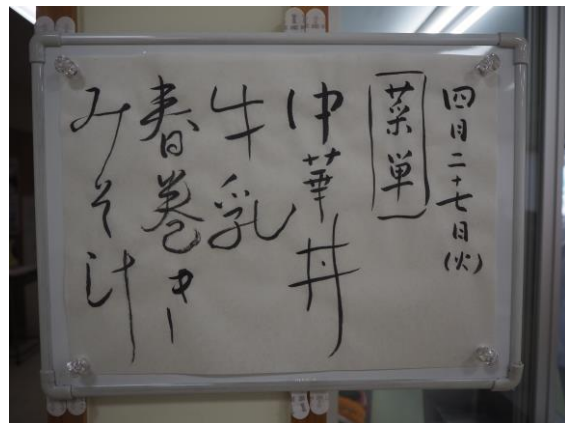 四月二十七日(火)
菜単
中華丼
牛乳
春巻き
みそ汁